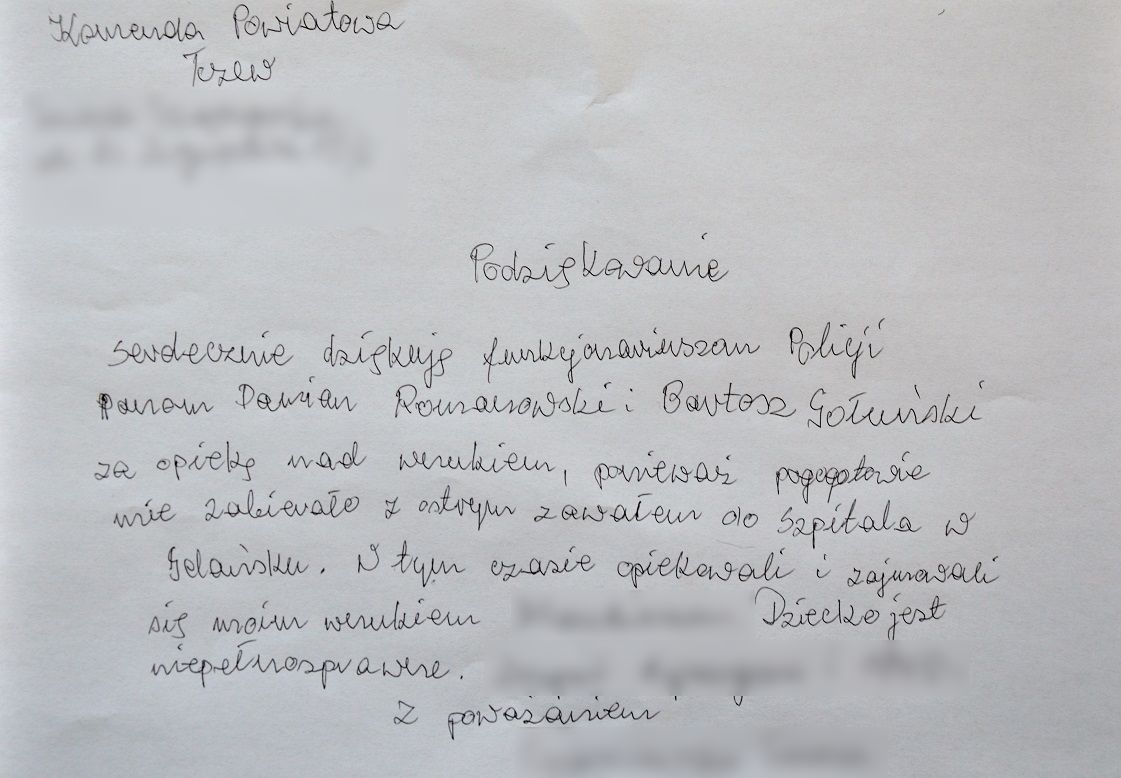 Komenda Powiatowa
Tczew
Podziękowanie
serdecznie dziękuję funkcjonariuszom Policji
Panom Damian Romanowski i Bartosz Gołuński
za opiekę nad wnukiem, ponieważ pogogotowie
mie zabierało z ostrym zawałem do Szpitala w
Gdańsku. W tym czasie opiekowali i zajmowali
się moim wnukiem Dziecko jest
niepełnosprawne.
Z poważaniem